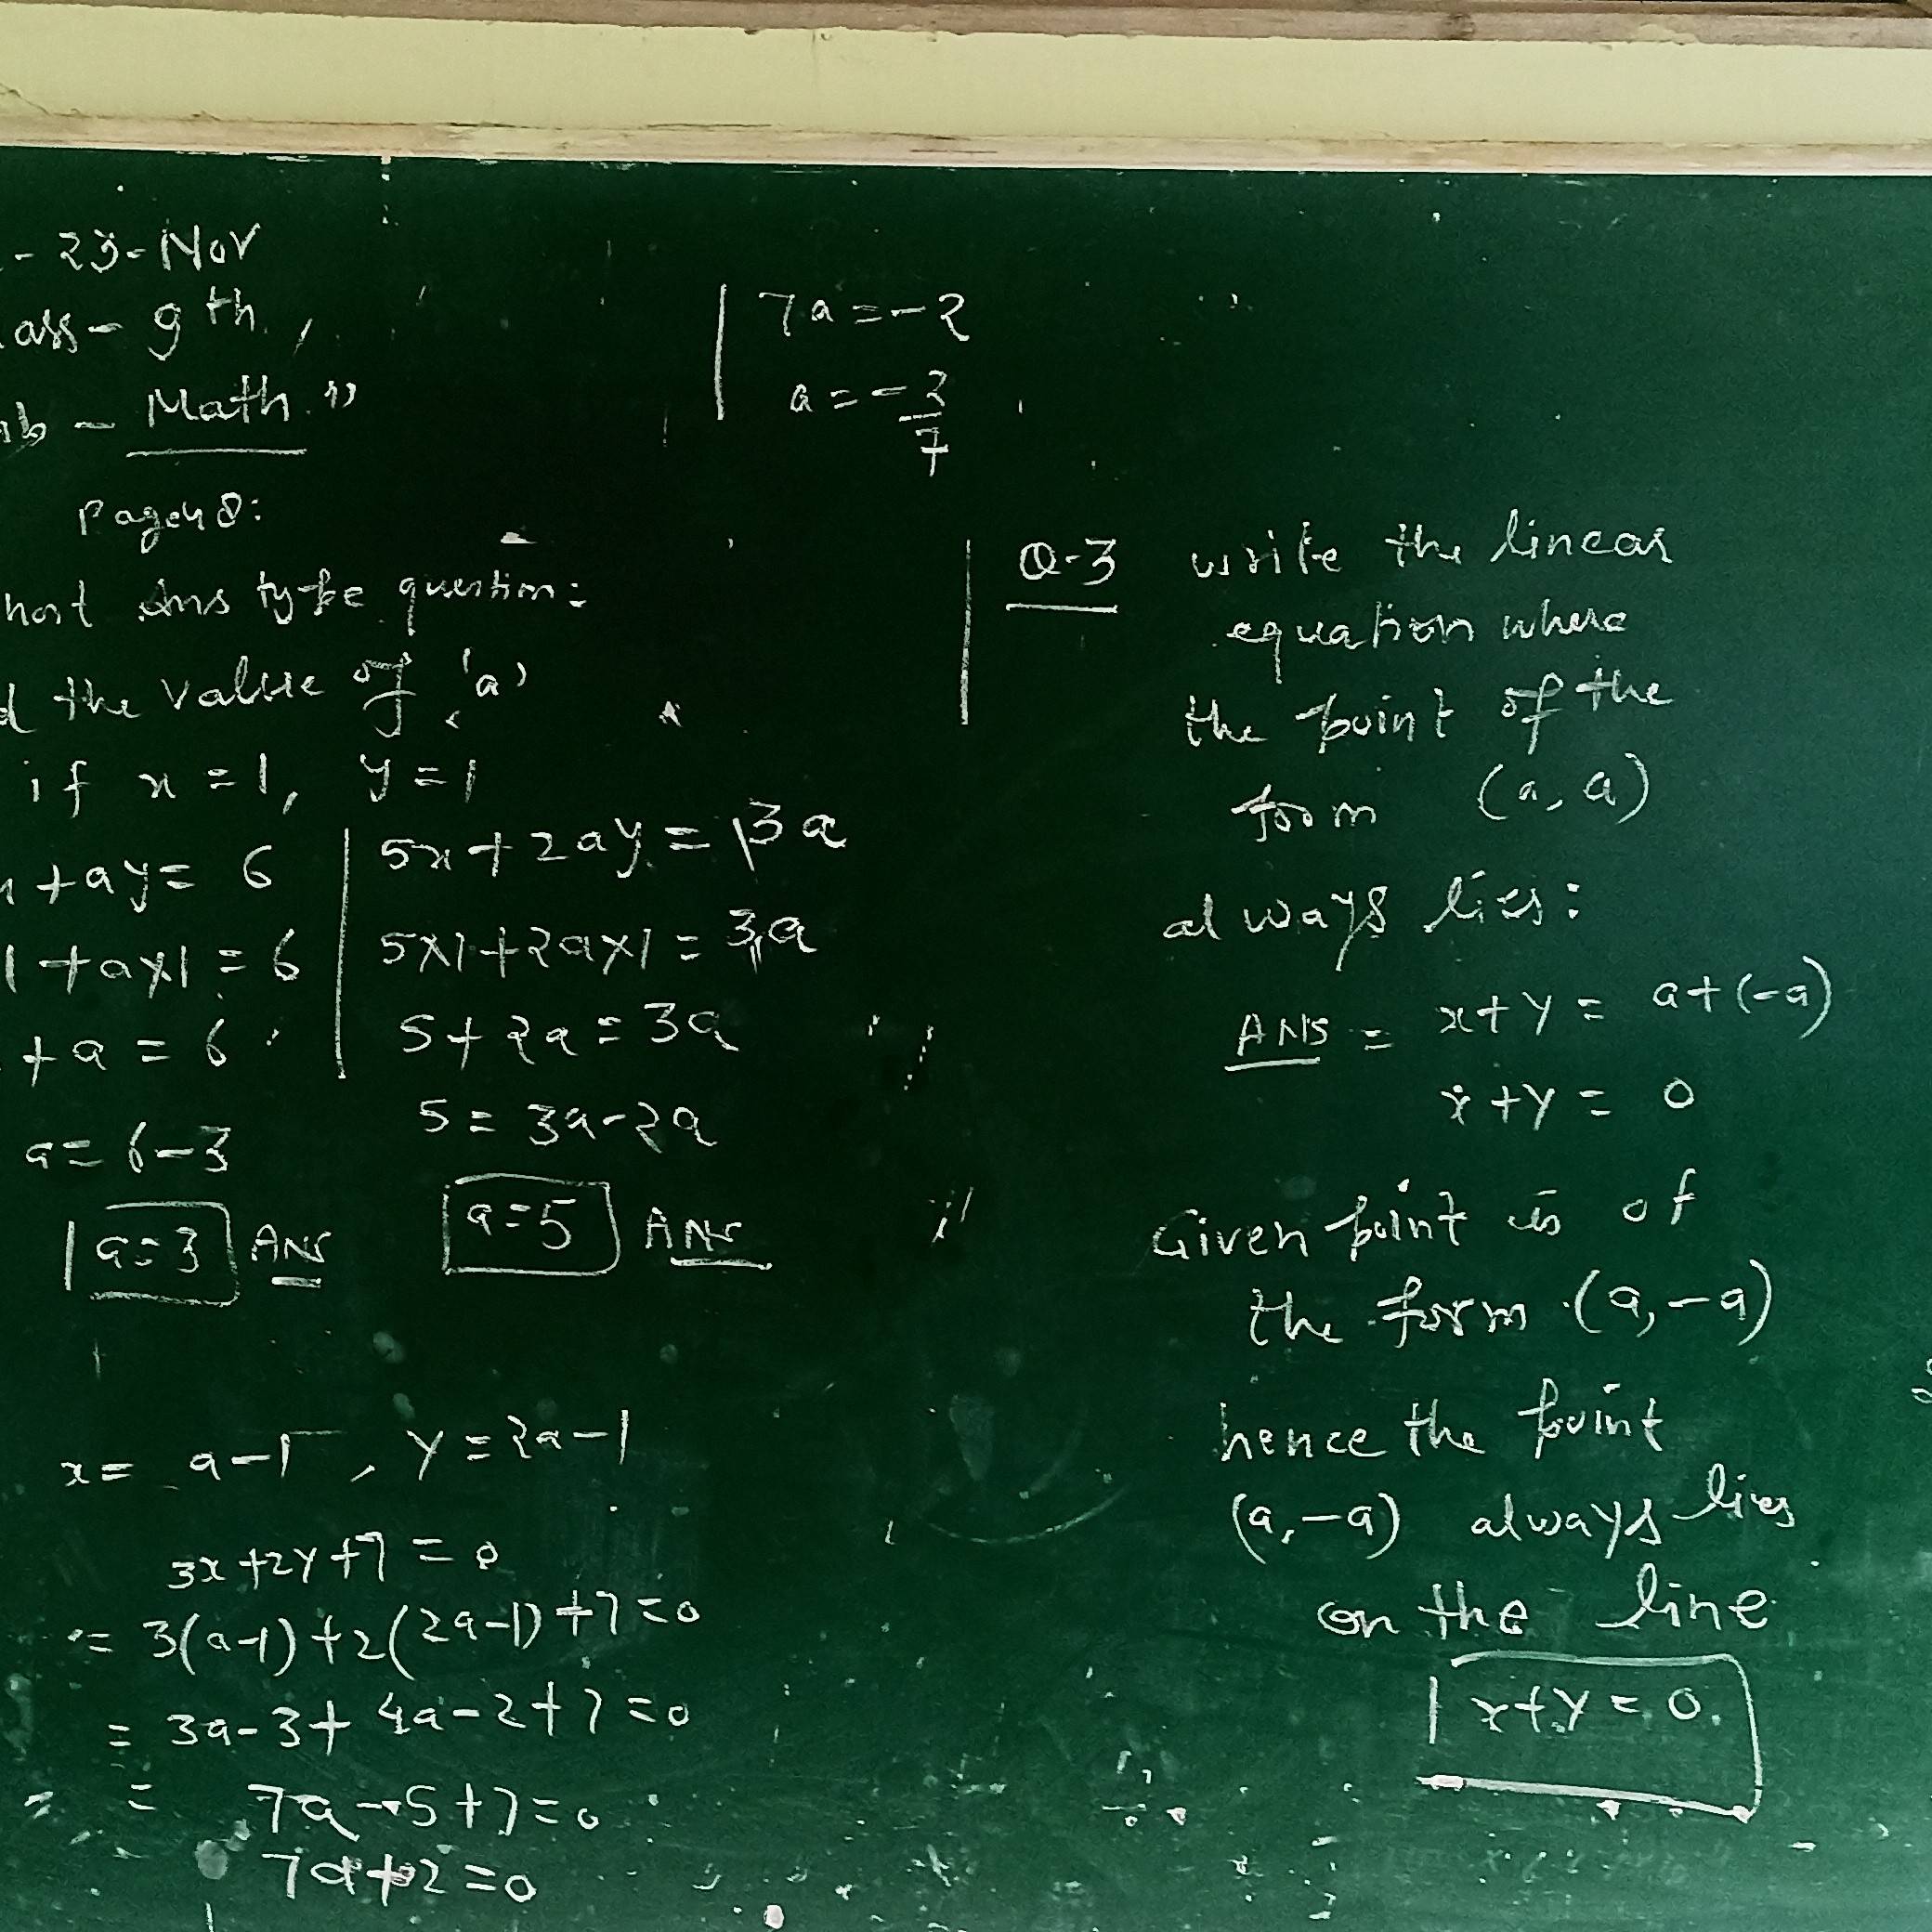 - 23 - Nov
ass - 9th
Math "
Page 48:
hort Ans type question:
d the value of 'a'
if x = 1, y = 1
+ay = 6
1 + a×1 = 6
+ a = 6
a = 6-3
a=3 Ans
5x + 2ay = 3a
5×1 + 2a×1 = 3a
5 + 2a = 3a
5 = 3a-2a
a=5 Ans
x = a-1, y = 2a-1
3x+2y+7 = 0
= 3(a-1)+2(2a-1)+7=0
= 3a-3+4a-2+7=0
= 7a-5+7=0
7a+2=0
7a = -2
a = -2/7
Q-3 write the linear
equation where
the point of the
form (a, a)
always lies:
ANS = x+y = a+(-a)
x+y = 0
Given point is of
the form (a, -a)
hence the point
(a, -a) always lies
on the line
x+y = 0.